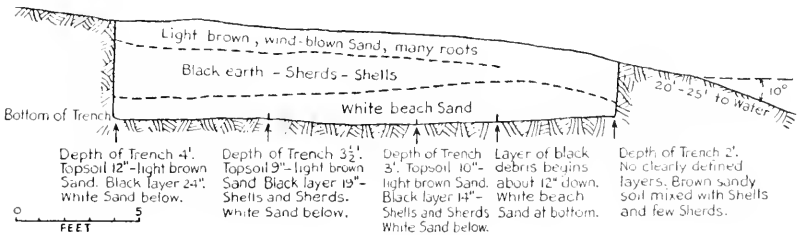 Light brown, wind-blown Sand, many roots
Black earth - Sherds - Shells
White beach Sand
Bottom of Trench
20'-25' to Water
10°
Depth of Trench 4'.
Topsoil 12"-light brown
Sand. Black layer 24".
White Sand below.
Depth of Trench 3½'.
Topsoil 9"-light brown
Sand Black layer 19"-
Shells and Sherds.
White Sand below.
Depth of Trench
3'. Topsoil 10"-
light brown Sand.
Black layer 14"-
Shells and Sherds
White Sand below.
Layer of black
debris begins
about 12" down.
White beach
Sand at bottom.
Depth of Trench 2'.
No clearly defined
layers. Brown sandy
soil mixed with Shells
and few Sherds.
0 5
FEET